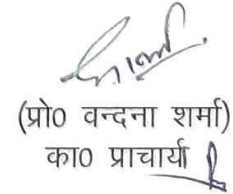 (प्रो0 वन्दना शर्मा)
का0 प्राचार्या